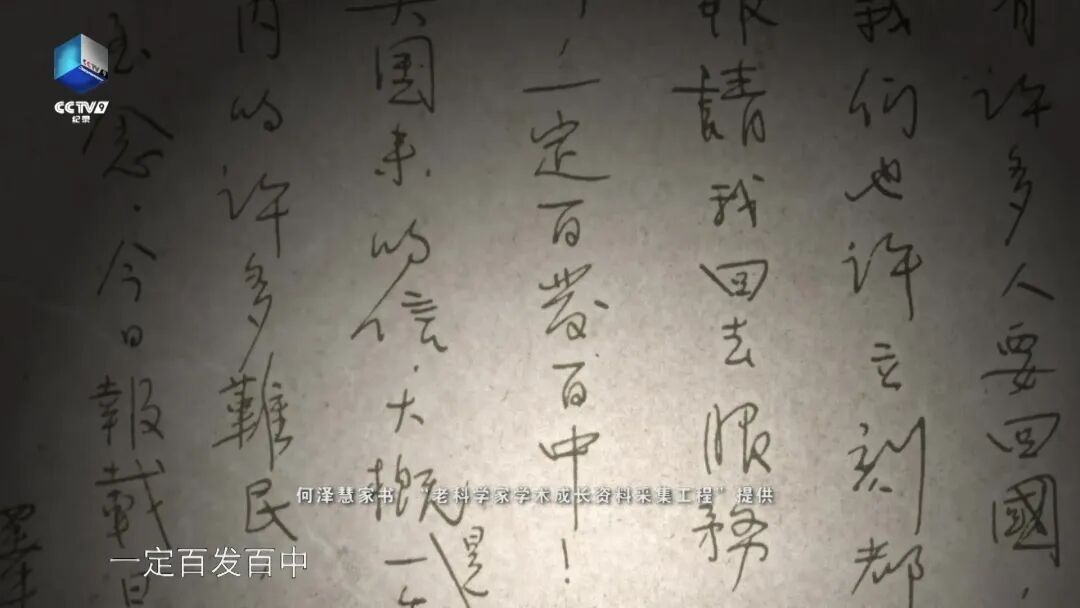 CCTV9
纪录
有许多人要回國，
我们也许立刻都
報請我回去服務
！一定百發百中！
国来的信．大概是一
内的许多難民，
念．今日報載日
何泽慧家书 “老科学家学术成长资料采集工程”提供
一定百发百中